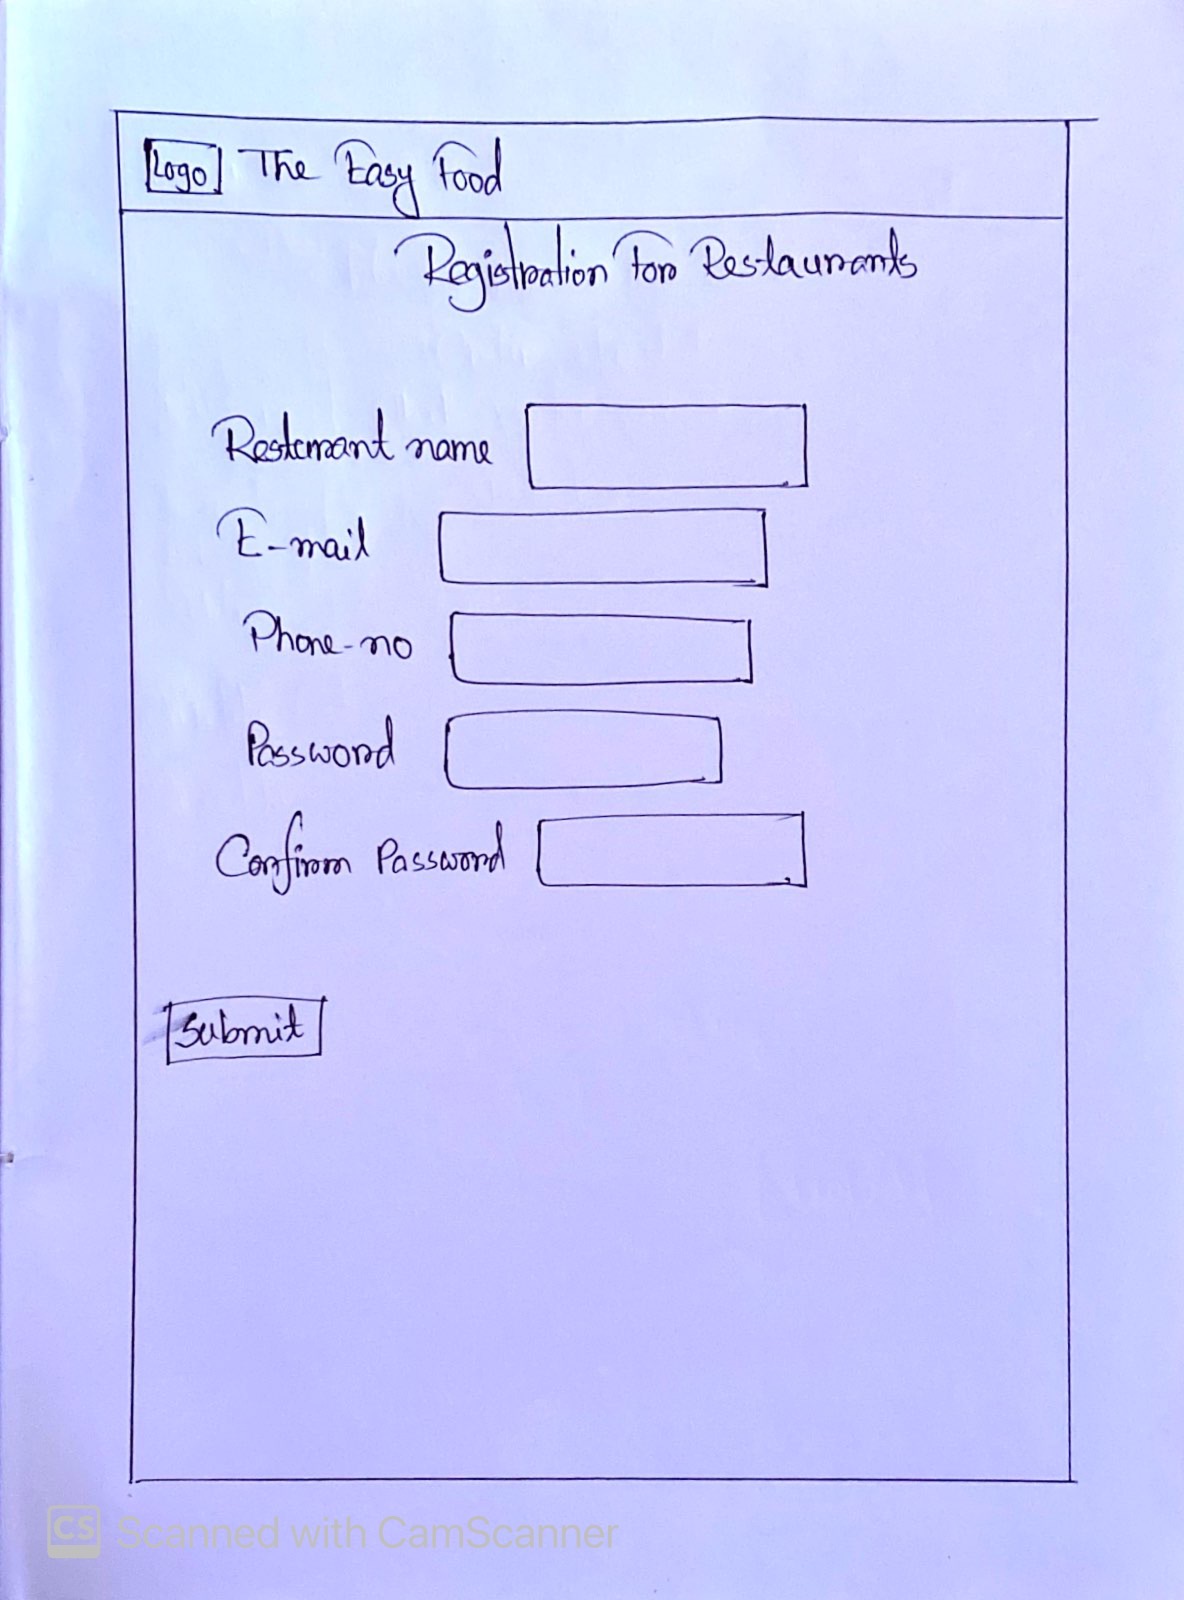 Logo The Easy Food
Registration For Restaurants
Restaurant name
E-mail
Phone-no
Password
Confirm Password
Submit
CS Scanned with CamScanner